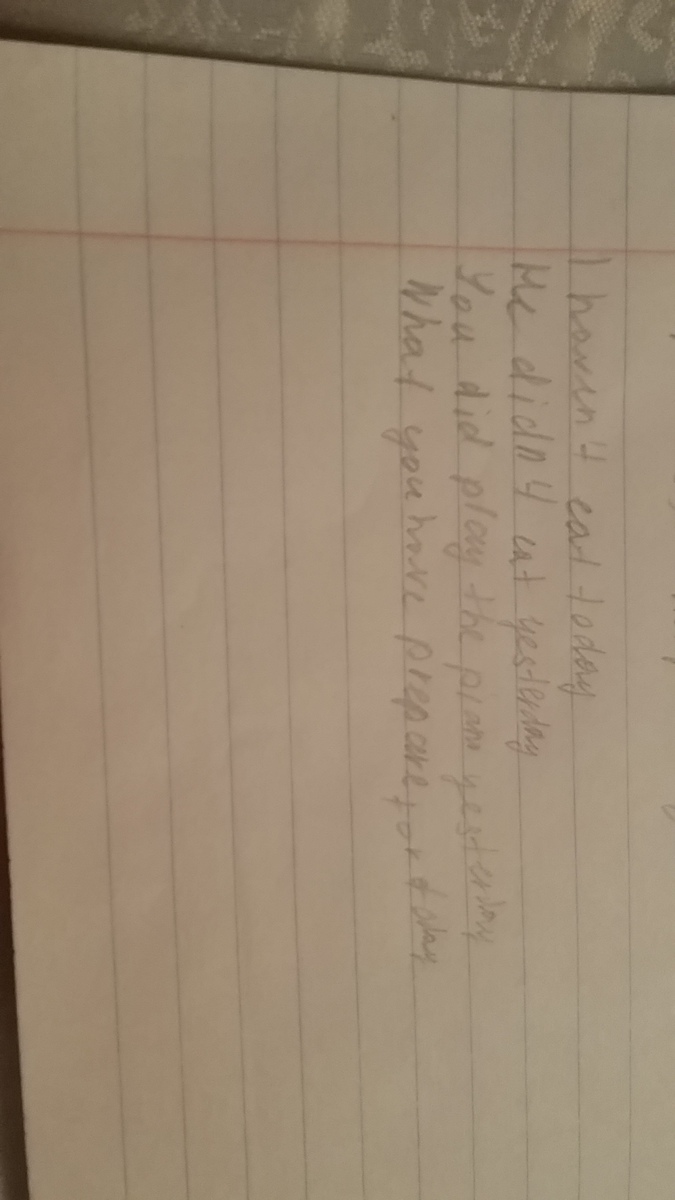 I haven't eat today
He didn't eat yesterday
You did play the piano yesterday
What you have prepare for today